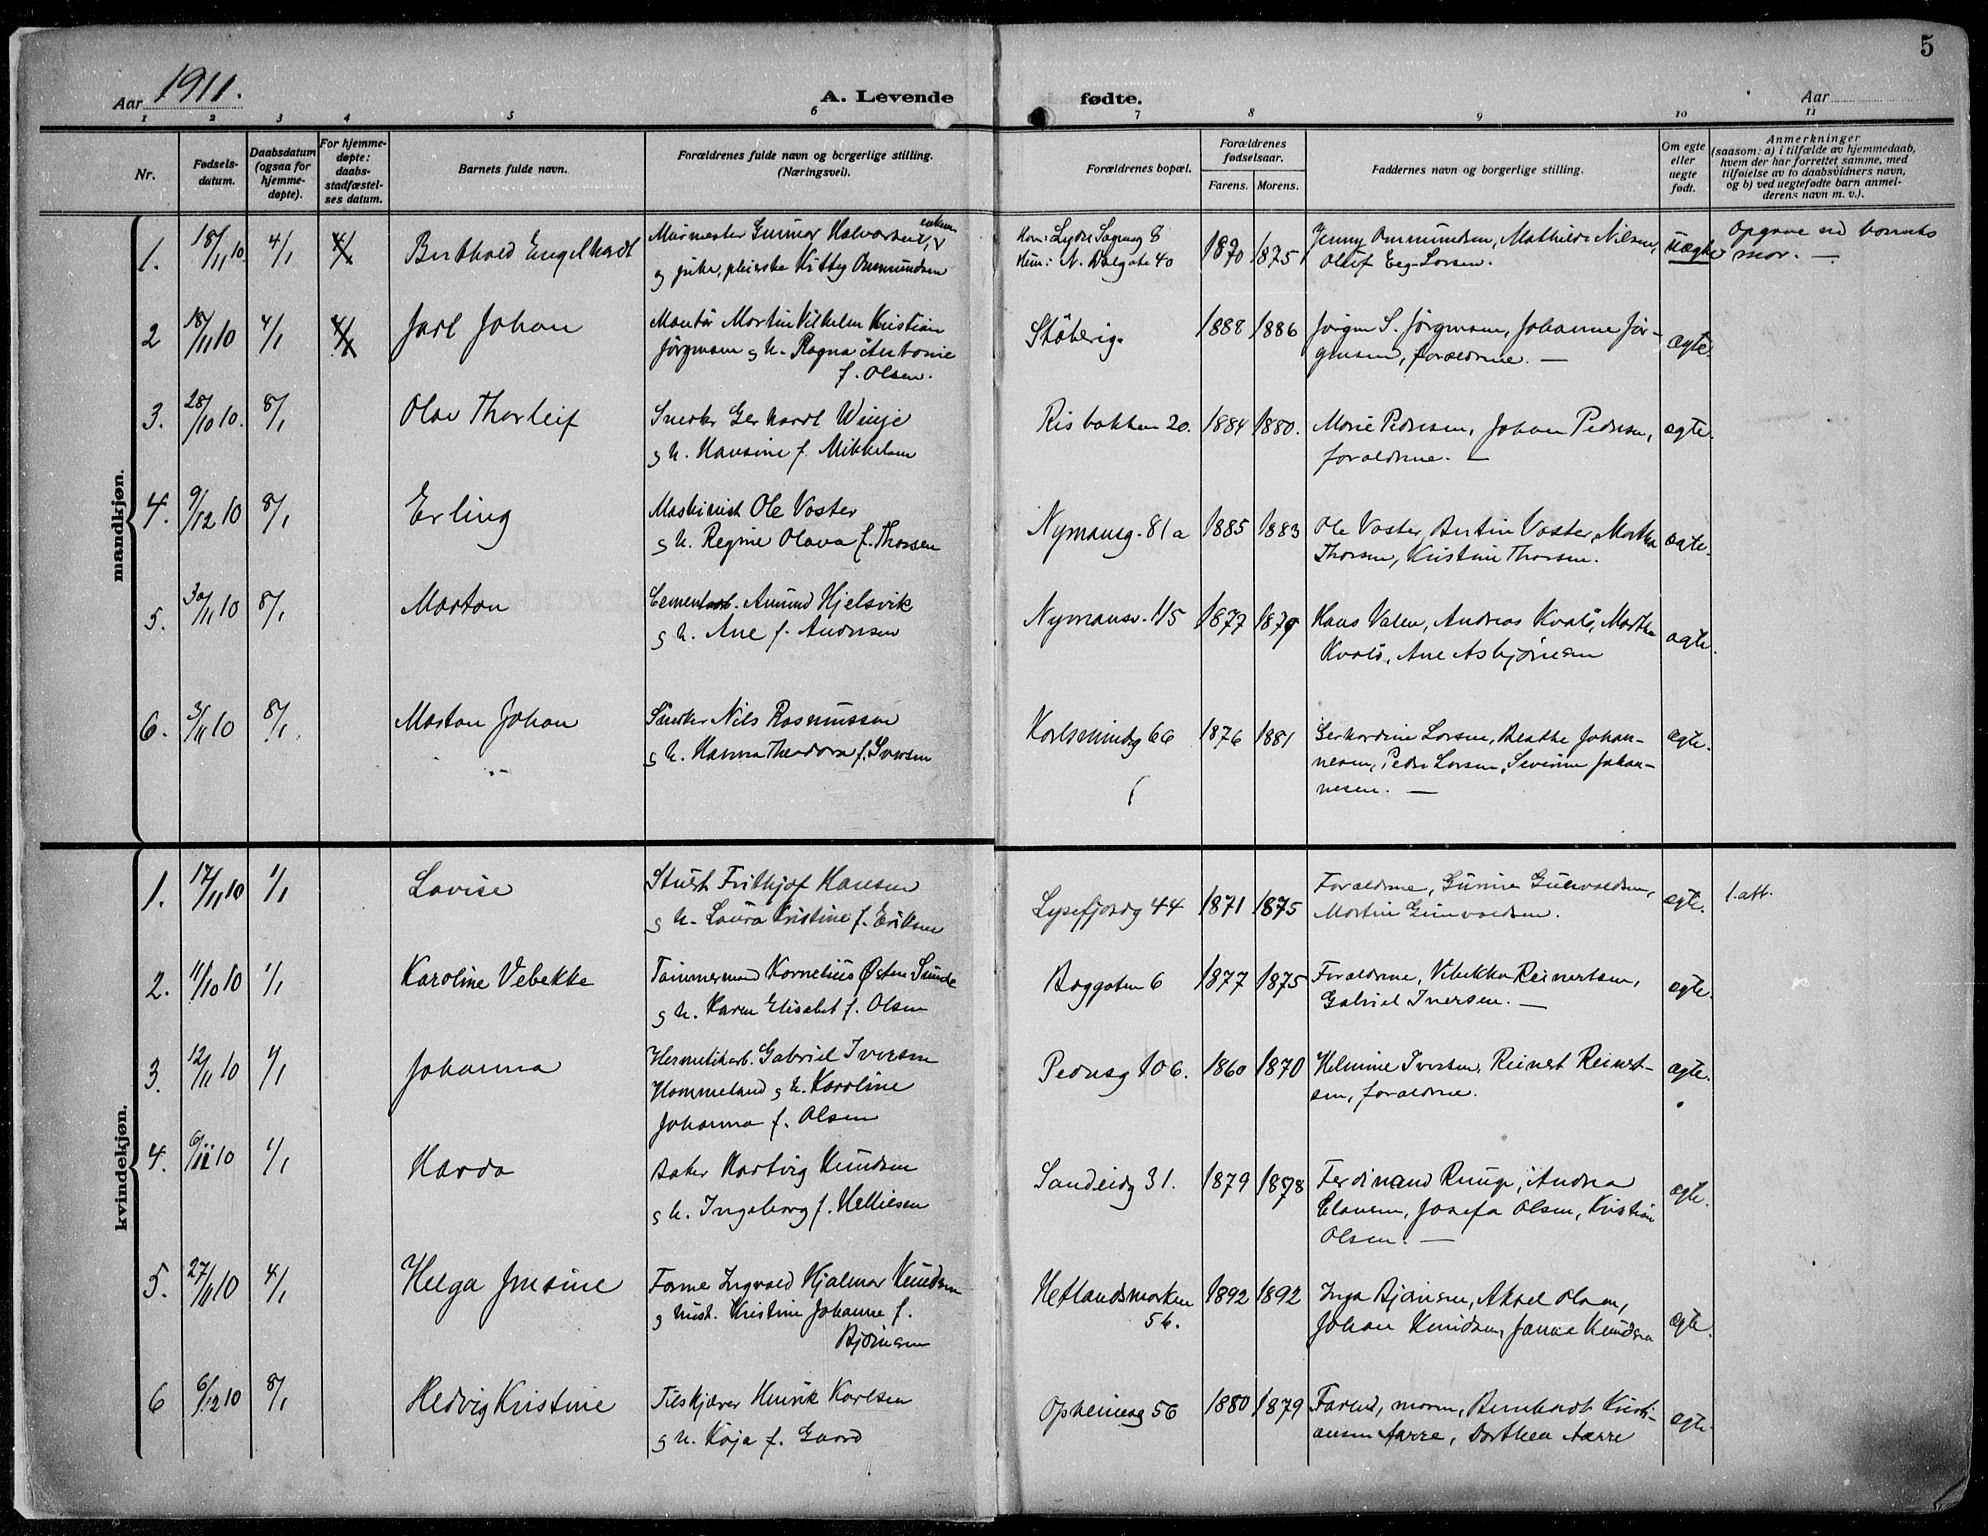 5
Aar 1911.
A. Levende fødte.
Aar
1 2 3 4 5 6 7 8 9 10 11
Nr.
Fødsels-
datum.
Daabsdatum
(ogsaa for
hjemme-
døpte).
For hjemme-
døpte:
daabs-
stadfæstel-
ses datum.
Barnets fulde navn.
Forældrenes fulde navn og borgerlige stilling.
(Næringsvei).
Forældrenes bopæl.
Forældrenes
fødselsaar.
Farens. Morens.
Faddernes navn og borgerlige stilling.
Om egte
eller
uegte
født.
Anmerkninger
(saasom: a) i tilfælde av hjemmedaab,
hvem der har forrettet samme, med
tilføielse av to daabsvidners navn,
og b) ved uegtefødte barn anmel-
derens navn m. v.).
mandkjøn.
1. 18/11 10. 4/1 4/1 Berthold Engelhardt
Murmester Gunnar Halvorsen,
og pike, pleierske Kitty Ommundsen
Hun: N. Dalgate 40
1870 1875
Jenny Ommundsen, Mathilde Nilsen,
Oluf Eeg-Larsen.
Uægte
Opgave ved barnets
mor. —
2 18/11 10 4/1 4/1 Jarl Johan
Montør Martin Vilhelm Kristian
Jørgensen og h. Ragna Antonie
f. Olsen.
Støberig.
1888 1886
Jørgen S. Jørgensen, Johanne Jør-
gensen, forældrene. —
ægte.
3. 28/10 10. 8/1 Olav Thorleif
Snedker Gerhardt Winje
og h. Hansine f. Mikkelsen
Risbakken 20.
1884 1880.
Marie Pedersen, Johan Pedersen,
forældrene. —
ægte.
4. 9/12 10 8/1 Erling
Maskinist Ole Vaster
og h. Regine Olava f. Thorsen
Nymansg. 81a
1885 1883
Ole Vaster, Bertin Vaster, Martha
Thorsen, Kristine Thorsen.
ægte.
5. 30/11 10 8/1 Marton
Cementarb. Amund Hjelsvik
og h. Ane f. Andersen
Nymansv. 115
1877 1879
Hans Valen, Andreas Kvalø, Martha
Kvalø, Ane Asbjørnsen
ægte.
6. 3/11 10 8/1 Marton Johan
Snedker Nils Rasmussen
og h. Hanna Theodora f. Iversen
Karlsmindeg 66
1876 1881
Gerhardine Larsen, Beathe Johan-
nesen, Peder Larsen, Severin Johan-
nesen. —
ægte.
kvindekjøn.
1. 17/11 10 1/1 Lovise
Stuert Frithjof Hansen
og h. Laura Kristine f. Eriksen
Lysefjordg 44
1871 1875
Forældrene, Gurine Gunvaldsen,
Martin Gunvaldsen.
ægte.
1. att.
2. 11/10 10 1/1 Karoline Vebekke
Tømmermand Kornelius Østen Sunde
og h. Karen Elisabet f. Olsen
Baggaten 6
1877 1875
Forældrene, Vibekka Reinertsen,
Gabriel Iversen. —
ægte.
3. 12/11 10 1/1 Johanna
Hermetikarb. Gabriel Iversen
Hommeland og h. Karoline
Johanna f. Olsen
Pedersg 106.
1860 1870
Helmine Iversen, Reinert Reinert-
sen, forældrene.
ægte.
4. 6/11 10 1/1 Harda
Baker Hartvig Knudsen
og h. Ingeborg f. Helliesen
Sandeidg 31.
1879 1878
Ferdinand Runge, Andrea
Clausen, Josefa Olsen, Kristian
Olsen. —
ægte.
5. 27/11 10 4/1 Helga Jensine
Former Ingvald Hjalmar Knudsen
og hust. Kristine Johanne f.
Bjørnsen
Hetlandsmarken
56.
1892 1892
Inga Bjørnsen, Aksel Olsen,
Johan Knudsen, Janna Knudsen
ægte.
6 6/12 10 8/1 Hedvig Kristine
Tilskjærer Henrik Karlsen
og h. Kaja f. Gaard
Opheimsg 56
1880 1879
Faren, moren, Bernhardt Kristi-
ansen Aarre, Dorthea Aarre
ægte.